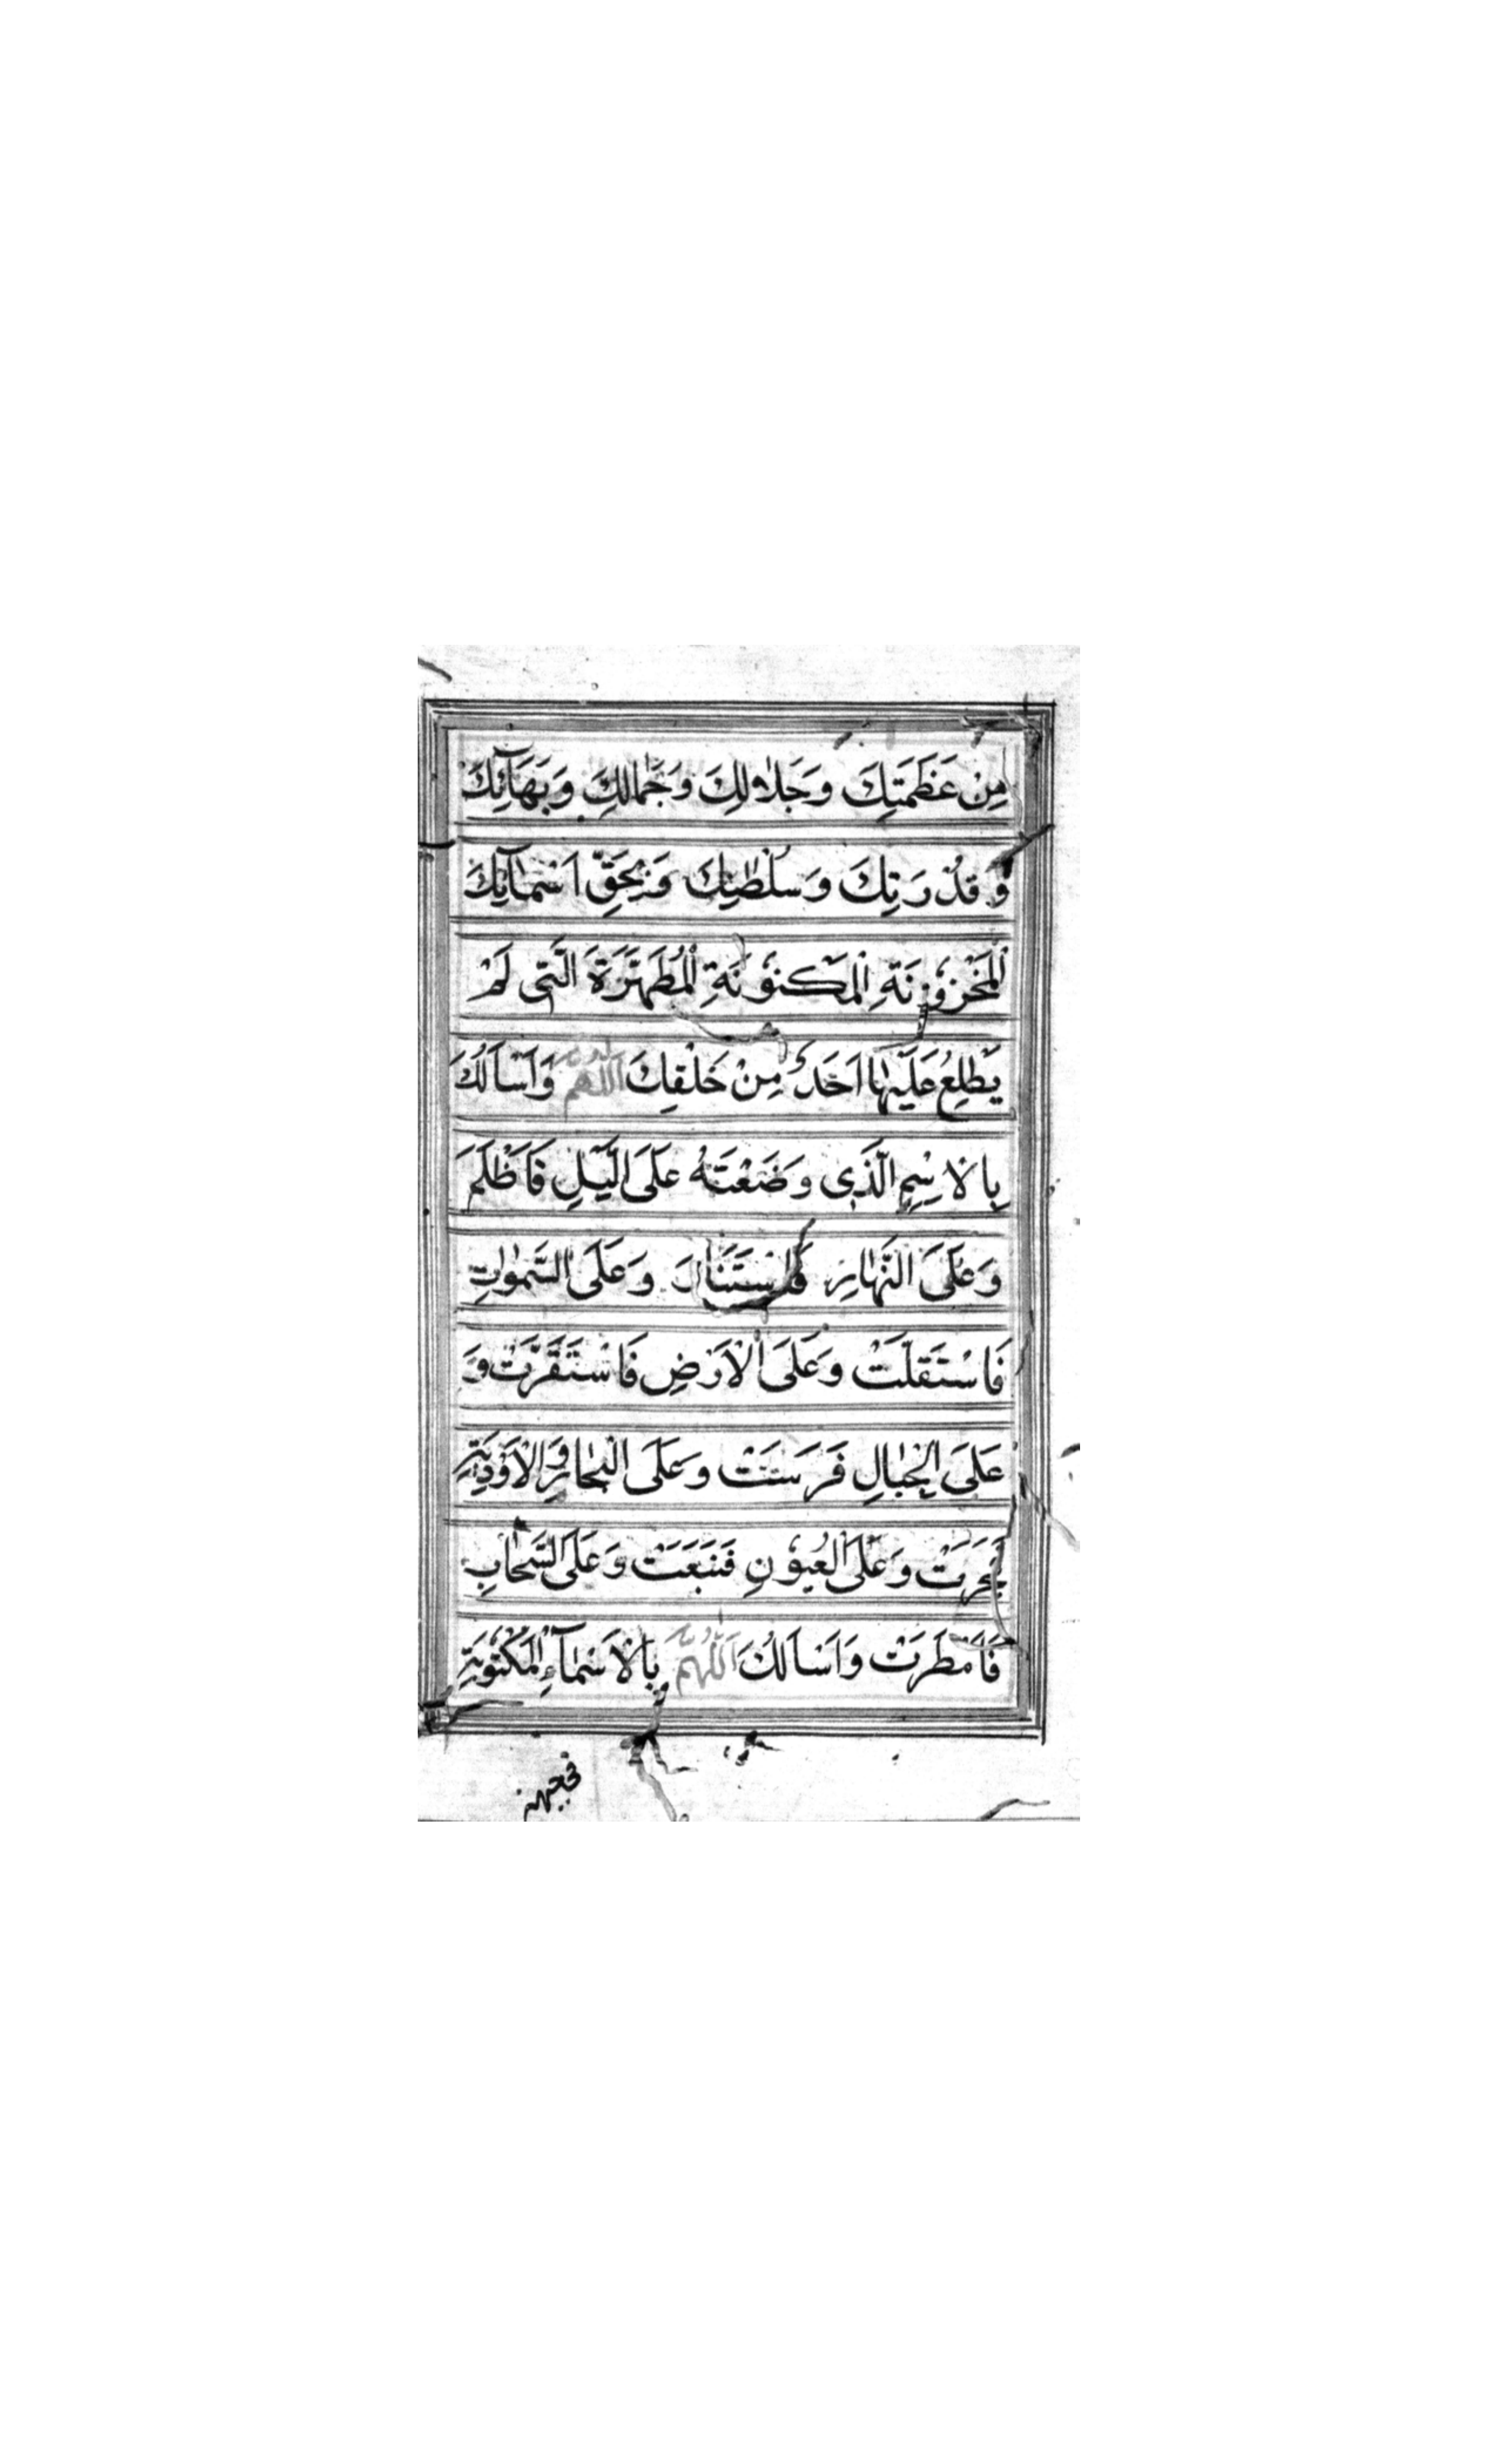 مِنْ عَظَمَتِكَ وَجَلَالِكَ وَجَمَالِكَ وَبَهَآئِكَ
وَقُدْرَتِكَ وَسُلْطٰنِكَ وَبِحَقِّ اَسْمَآئِكَ
الْمَخْزُوْنَةِ الْمَكْنُوْنَةِ الْمُطَهَّرَةِ الَّتِى لَمْ
يَطَّلِعْ عَلَيْهَا اَحَدٌ مِنْ خَلْقِكَ اَللّٰهُمَّ وَاَسْاَلُكَ
بِالْاِسْمِ الَّذِى وَضَعْتَهُ عَلَى الَّيْلِ فَاَظْلَمَ
وَعَلَى النَّهَارِ فَاسْتَنَارَ وَعَلَى السَّمٰوٰاتِ
فَاسْتَقَلَّتْ وَعَلَى الْاَرْضِ فَاسْتَقَرَّتْ وَ
عَلَى الْجِبَالِ فَرَسَتَتْ وَعَلَى الْبِحَارِ وَالْاَوْدِيَةِ
فَجَرَتْ وَعَلَى الْعُيُوْنِ فَنَبَعَتْ وَعَلَى السَّحَابِ
فَاَمْطَرَتْ وَاَسْاَلُكَ اَللّٰهُمَّ بِالْاَسْمَآءِ الْمَكْتُوْبَةِ